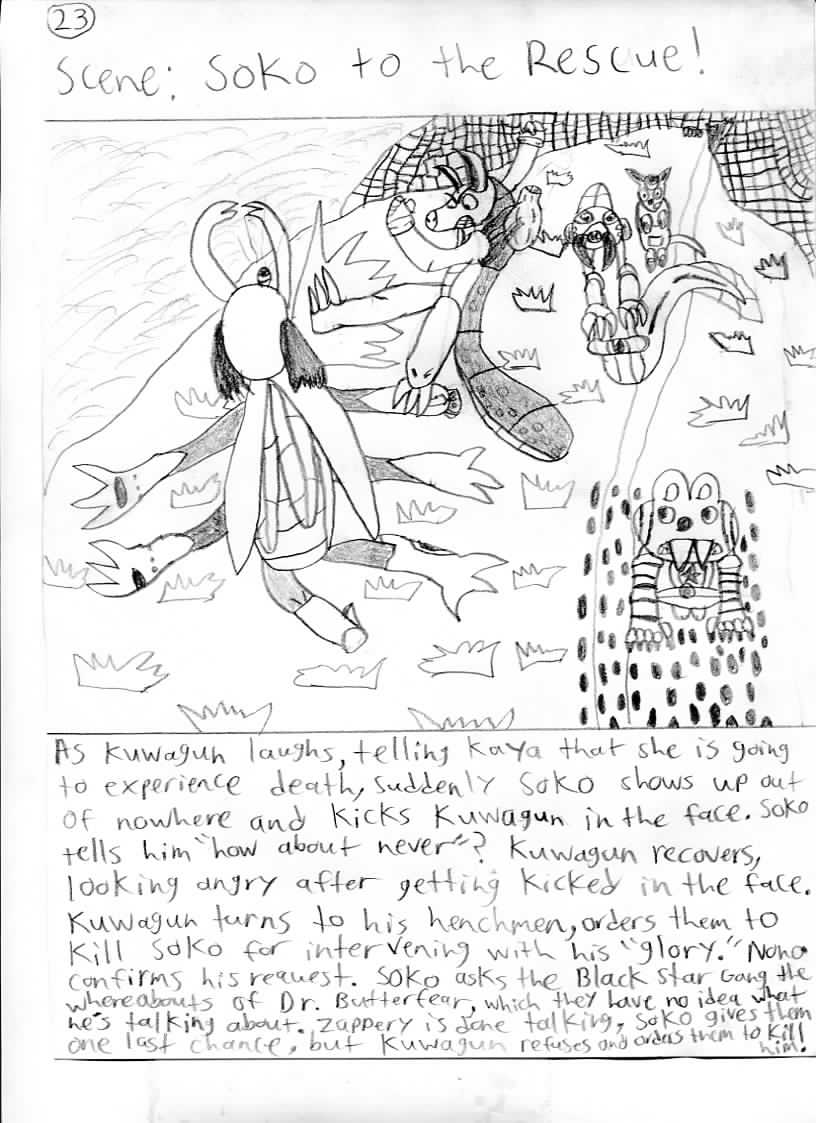 23
Scene: Soko to the Rescue!
As Kuwagun laughs, telling Kaya that she is going
to experience death, suddenly Soko shows up out
of nowhere and kicks Kuwagun in the face. Soko
tells him "how about never"? Kuwagun recovers,
looking angry after getting kicked in the face.
Kuwagun turns to his henchmen, orders them to
kill Soko for intervening with his "glory." Nona
confirms his request. Soko asks the Black Star Gang the
whereabouts of Dr. Butterfear, which they have no idea what
he's talking about. Zappery is done talking, Soko gives them
one last chance, but Kuwagun refuses and orders them to kill
him.